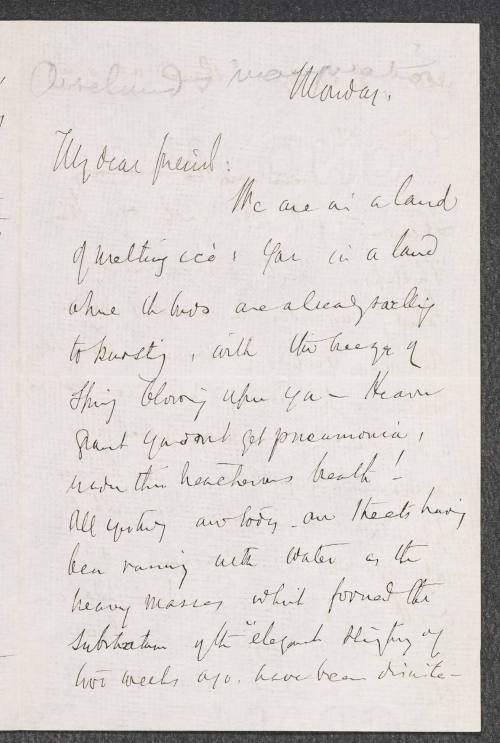 Monday.
My dear friend:
We are in a land
of melting ice; you in a land
where the buds are already swelling
to bursting, with the breeze of
Spring blowing upon you – Heaven
grant you don't get pneumonia,
under this treacherous breath! –
All yesterday and today – our streets having
been running with water as the
heavy masses which formed the
substratum of the "elegant sleighing" of
two weeks ago, have been disinte-